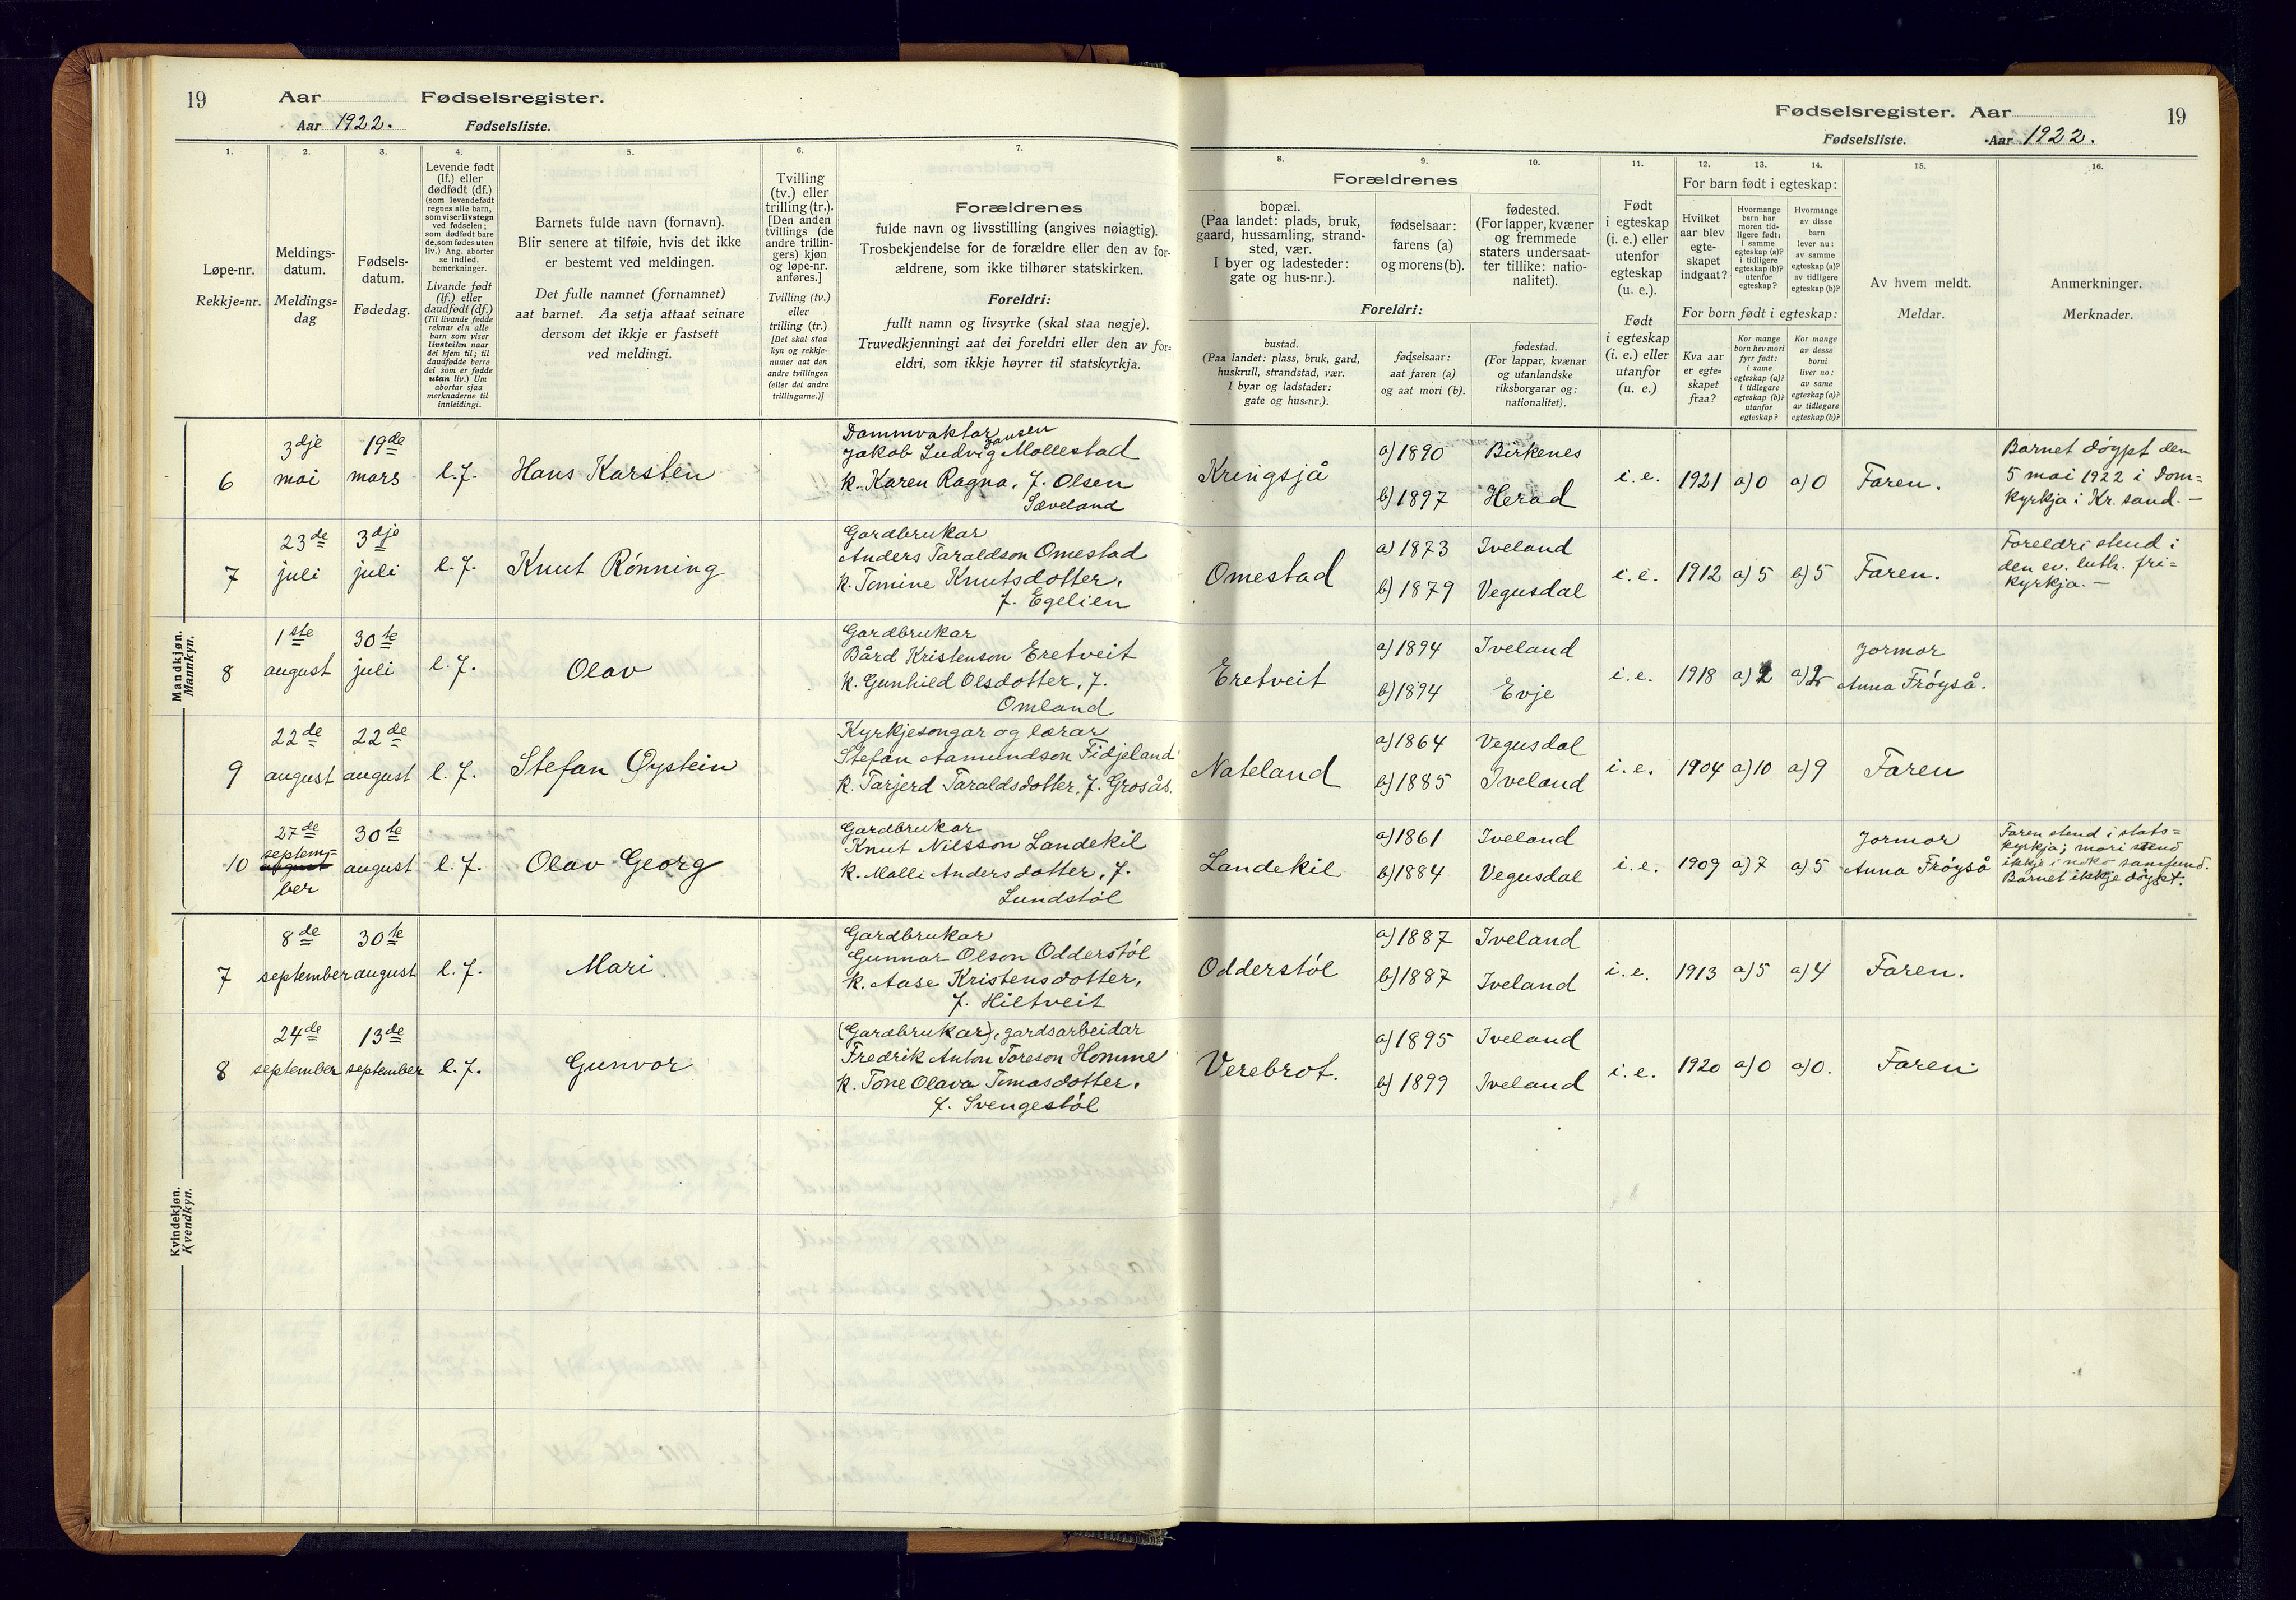 19
Aar
Fødselsregister.
Aar 1922.
Fødselsliste.
1.
2.
3.
4.
5.
6.
7.
Løpe-nr.
Rekkje=nr.
Meldings-
datum.
Meldings=
dag
Fødsels-
datum.
Fødedag.
Levende født
(lf.) eller
dødfødt (df.)
(som levendefødt
regnes alle barn,
som viser livstegn
ved fødselen;
som dødfødt bare
de, som fødes uten
liv.) Ang. aborter
se indled.
bemerkninger.
Livande født
(lf.) eller
daudfødt (df.)
(Til livande fødde
reknar ein alle
barn som viser
livsteikn naar
dei kjem til; til
daudfødde berre
dei som er fødde
utan liv.) Um
abortar sjaa
merknaderne til
innleidingi.
Barnets fulde navn (fornavn).
Blir senere at tilføie, hvis det ikke
er bestemt ved meldingen.
Det fulle namnet (fornamnet)
aat barnet. Aa setja attaat seinare
dersom det ikkje er fastsett
ved meldingi.
Tvilling
(tv.) eller
trilling (tr.).
[Den anden
tvillings (de
andre trillin-
gers) kjøn
og løpe-nr.
anføres.]
Tvilling (tv.)
eller
trilling (tr.)
[Det skal staa
kyn og rekkje-
numer aat den
andre tvillingen
(eller dei andre
trillingarne.)]
Forældrenes
fulde navn og livsstilling (angives nøiagtig).
Trosbekjendelse for de forældre eller den av for-
ældrene, som ikke tilhører statskirken.
Foreldri:
fullt namn og livsyrke (skal staa nøgje).
Truvedkjenningi aat dei foreldri eller den av for-
eldri, som ikkje høyrer til statskyrkja.
Mandkjøn.
Mannkyn.
6
3dje
mai
19de
mars
l.f.
Hans Karsten
Dammvaktar
Jansen
Jakob Ludvig Mollestad
k. Karen Ragna, f. Olsen
Sæveland
7
23de
juli
3dje
juli
l.f.
Knut Rønning
Gardbrukar
Anders Taraldson Omestad
k. Tomine Knutsdotter,
f. Egelien
8
1ste
august
30te
juli
l.f.
Olav
Gardbrukar
Bård Kristenson Eretveit
k. Gunhild Olsdotter, f.
Omland
9
22de
august
22de
august
l.f.
Stefan Øystein
Kyrkjesongar og lærar
Stefan Aamundson Fidjeland
k. Tarjerd Taraldsdotter, f. Grosås.
10
27de
septem-
august
ber
30te
august
l.f.
Olav Georg
Gardbrukar
Knut Nilsson Landekil
k. Malli Andersdotter, f.
Lundstøl
Kvindekjøn.
Kvendkyn.
7
8de
september
30te
august
l.f.
Mari
Gardbrukar
Gunnar Olson Odderstøl
k. Aase Kristensdotter,
f. Hiltveit
8
24de
september
13de
september
l.f.
Gunvor
(Gardbrukar), gardsarbeidar
Fredrik Anton Toreson Homme
k. Tone Olava Tomasdotter,
f. Svengestøl
Fødselsregister. Aar
19
Fødselsliste.
Aar 1922.
8.
9.
10.
11.
12.
13.
14.
15.
16.
Forældrenes
bopæl.
(Paa landet: plads, bruk,
gaard, hussamling, strand-
sted, vær.
I byer og ladesteder:
gate og hus-nr.).
fødselsaar:
farens (a)
og morens (b).
fødested.
(For lapper, kvæner
og fremmede
staters undersaat-
ter tillike: natio-
nalitet).
Foreldri:
bustad.
(Paa landet: plass, bruk, gard,
huskrull, strandstad, vær.
I byar og ladstader:
gate og hus-nr.).
fødselsaar:
aat faren (a)
og aat mori (b).
fødestad.
(For lappar, kvænar
og utanlandske
riksborgarar og:
nationalitet).
Født
i egteskap
(i. e.) eller
utenfor
egteskap
(u. e.).
Født
i egteskap
(i. e.) eller
utanfor
(u. e.)
For barn født i egteskap:
Hvilket
aar blev
egte-
skapet
indgaat?
Hvormange
barn har
moren tid-
ligere født:
i samme
egteskap (a)?
i tidligere
egteskap (b)?
utenfor
egteskap?
Hvormange
av disse
barn
lever nu:
av samme
egteskap (a)?
av tidligere
egteskap (b)?
For born født i egteskap:
Kva aar
er egte=
skapet
fraa?
Kor mange
born hev mori
fyrr født:
i same
egteskap (a)?
i tidlegare
egteskap (b)?
utanfor
egteskap?
Kor mange
av desse
borni
liver no:
av same
egteskap (a)?
av tidlegare
egteskap (b)?
Av hvem meldt.
Meldar.
Anmerkninger.
Merknader.
Kringsjå
a) 1890
b) 1897
Birkenes
Herad
i.e.
1921
a) 0
a) 0
Faren.
Barnet døypt den
5 mai 1922 i Dom=
kyrkja i Kr.sand. —
Omestad
a) 1873
b) 1879
Iveland
Vegusdal
i.e.
1912
a) 5
5
Faren.
Foreldri stend i
den ev. luth. fri=
kyrkja. —
Eretveit
a) 1894
b) 1894
Iveland
Evje
i.e.
1918
a) 2
a) 2
Jormor
Anna Frøyså.
Nateland
a) 1864
b) 1885
Vegusdal
Iveland
i.e.
1904
a) 10
a) 9
Faren
Landekil
a) 1861
b) 1884
Iveland
Vegusdal
i.e.
1909
a) 7
a) 5
Jormor
Anna Frøyså
Faren stend i stats=
kyrkja; mori stend
ikkje i noko samfund.
Barnet ikkje døypt.
Odderstøl
a) 1887
b) 1887
Iveland
Iveland
i.e.
1913
a) 5
a) 4
Faren.
Verebrot.
a) 1895
b) 1899
Iveland
Iveland
i.e.
1920
a) 0
a) 0.
Faren.